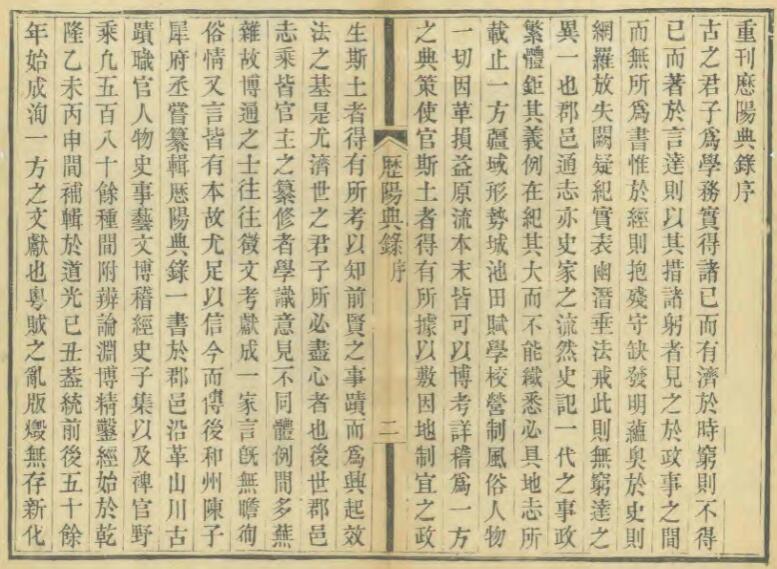 重刊歴陽典錄序
古之君子爲學務實得諸已而有濟於時窮則不得
已而著於言達則以其措諸躬者見之於政事之間
而無所爲書惟於經則抱殘守缺發明蘊奥於史則
網羅放失闕疑紀實表幽潛垂法戒此則無窮達之
異一也郡邑通志亦史家之流然史記一代之事政
繁體鉅其義例在紀其大而不能纖悉必具地志所
載止一方疆域形勢城池田賦學校營制風俗人物
一切因革損益原流本末皆可以博考詳稽爲一方
之典策使官斯土者得有所據以敷因地制宜之政
歴陽典錄
序
二
生斯土者得有所考以知前賢之事蹟而爲興起效
法之基是尤濟世之君子所必盡心者也後世郡邑
志乘皆官主之纂修者學識意見不同體例間多蕪
雜故博通之士往往徵文考獻成一家言旣無瞻徇
俗情又言皆有本故尤足以信今而傳後和州陳子
犀府丞嘗纂輯歴陽典錄一書於郡邑沿革山川古
蹟職官人物史事藝文博稽經史子集以及稗官野
乘凢五百八十餘種間附辨論淵博精鑿經始於乾
隆乙未丙申間補輯於道光己丑葢統前後五十餘
年始成洵一方之文獻也粤賊之亂版燬無存新化